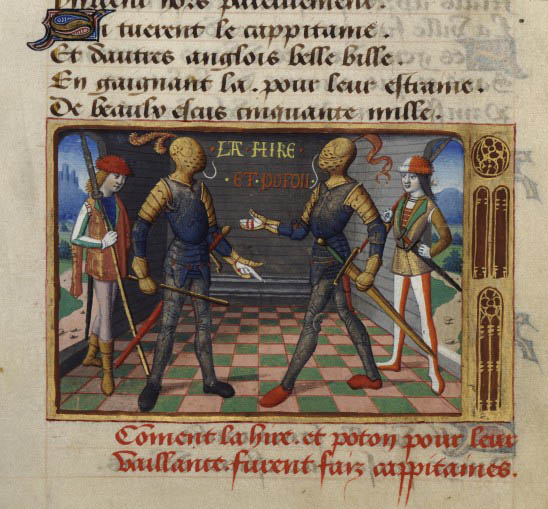 hors
Si tuerent le cappitaine.
Et dautres anglois belle bille.
En gaignant la. pour leur estraine.
De beaulx escus cinquante mille.
LA HIRE
· ET POTON
Cōment la hire. et poton pour leur
vaillance. furent faiz cappitaines.